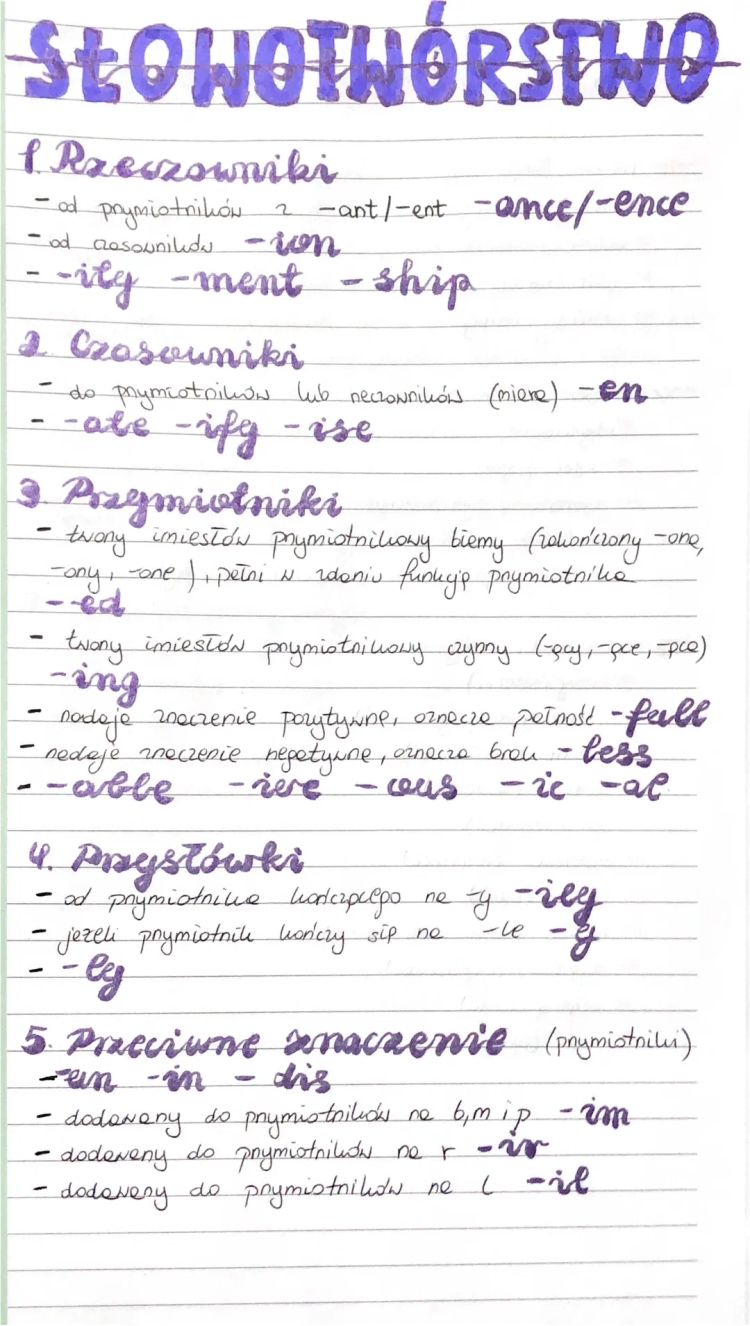 SŁOWOTWÓRSTWO
1. Rzeczowniki
- od przymiotników z -ant/-ent -ance/-ence
- od czasowników -ion
- -ity -ment -ship
2. Czasowniki
- do przymiotników lub rzeczowników (miara) -en
- -ate -ify -ise
3. Przymiotniki
- tworzy imiesłów przymiotnikowy bierny (zakończony -one,
-ony, -one), pełni w zdaniu funkcję przymiotnika
- -ed
- tworzy imiesłów przymiotnikowy czynny (-ący, -ące, -ąca)
-ing
- nadaje znaczenie pozytywne, oznacza pełność -full
- nadaje znaczenie negatywne, oznacza brak -less
- -able -ive -ous -ic -al
4. Przysłówki
- od przymiotnika kończącego na -y -ily
- jeżeli przymiotnik kończy się na -le -y
- -ly
5. Przeciwne znaczenie (przymiotniki)
-un -in - dis
- dodawany do przymiotników na b, m i p -im
- dodawany do przymiotników na r -ir
- dodawany do przymiotników na l -il